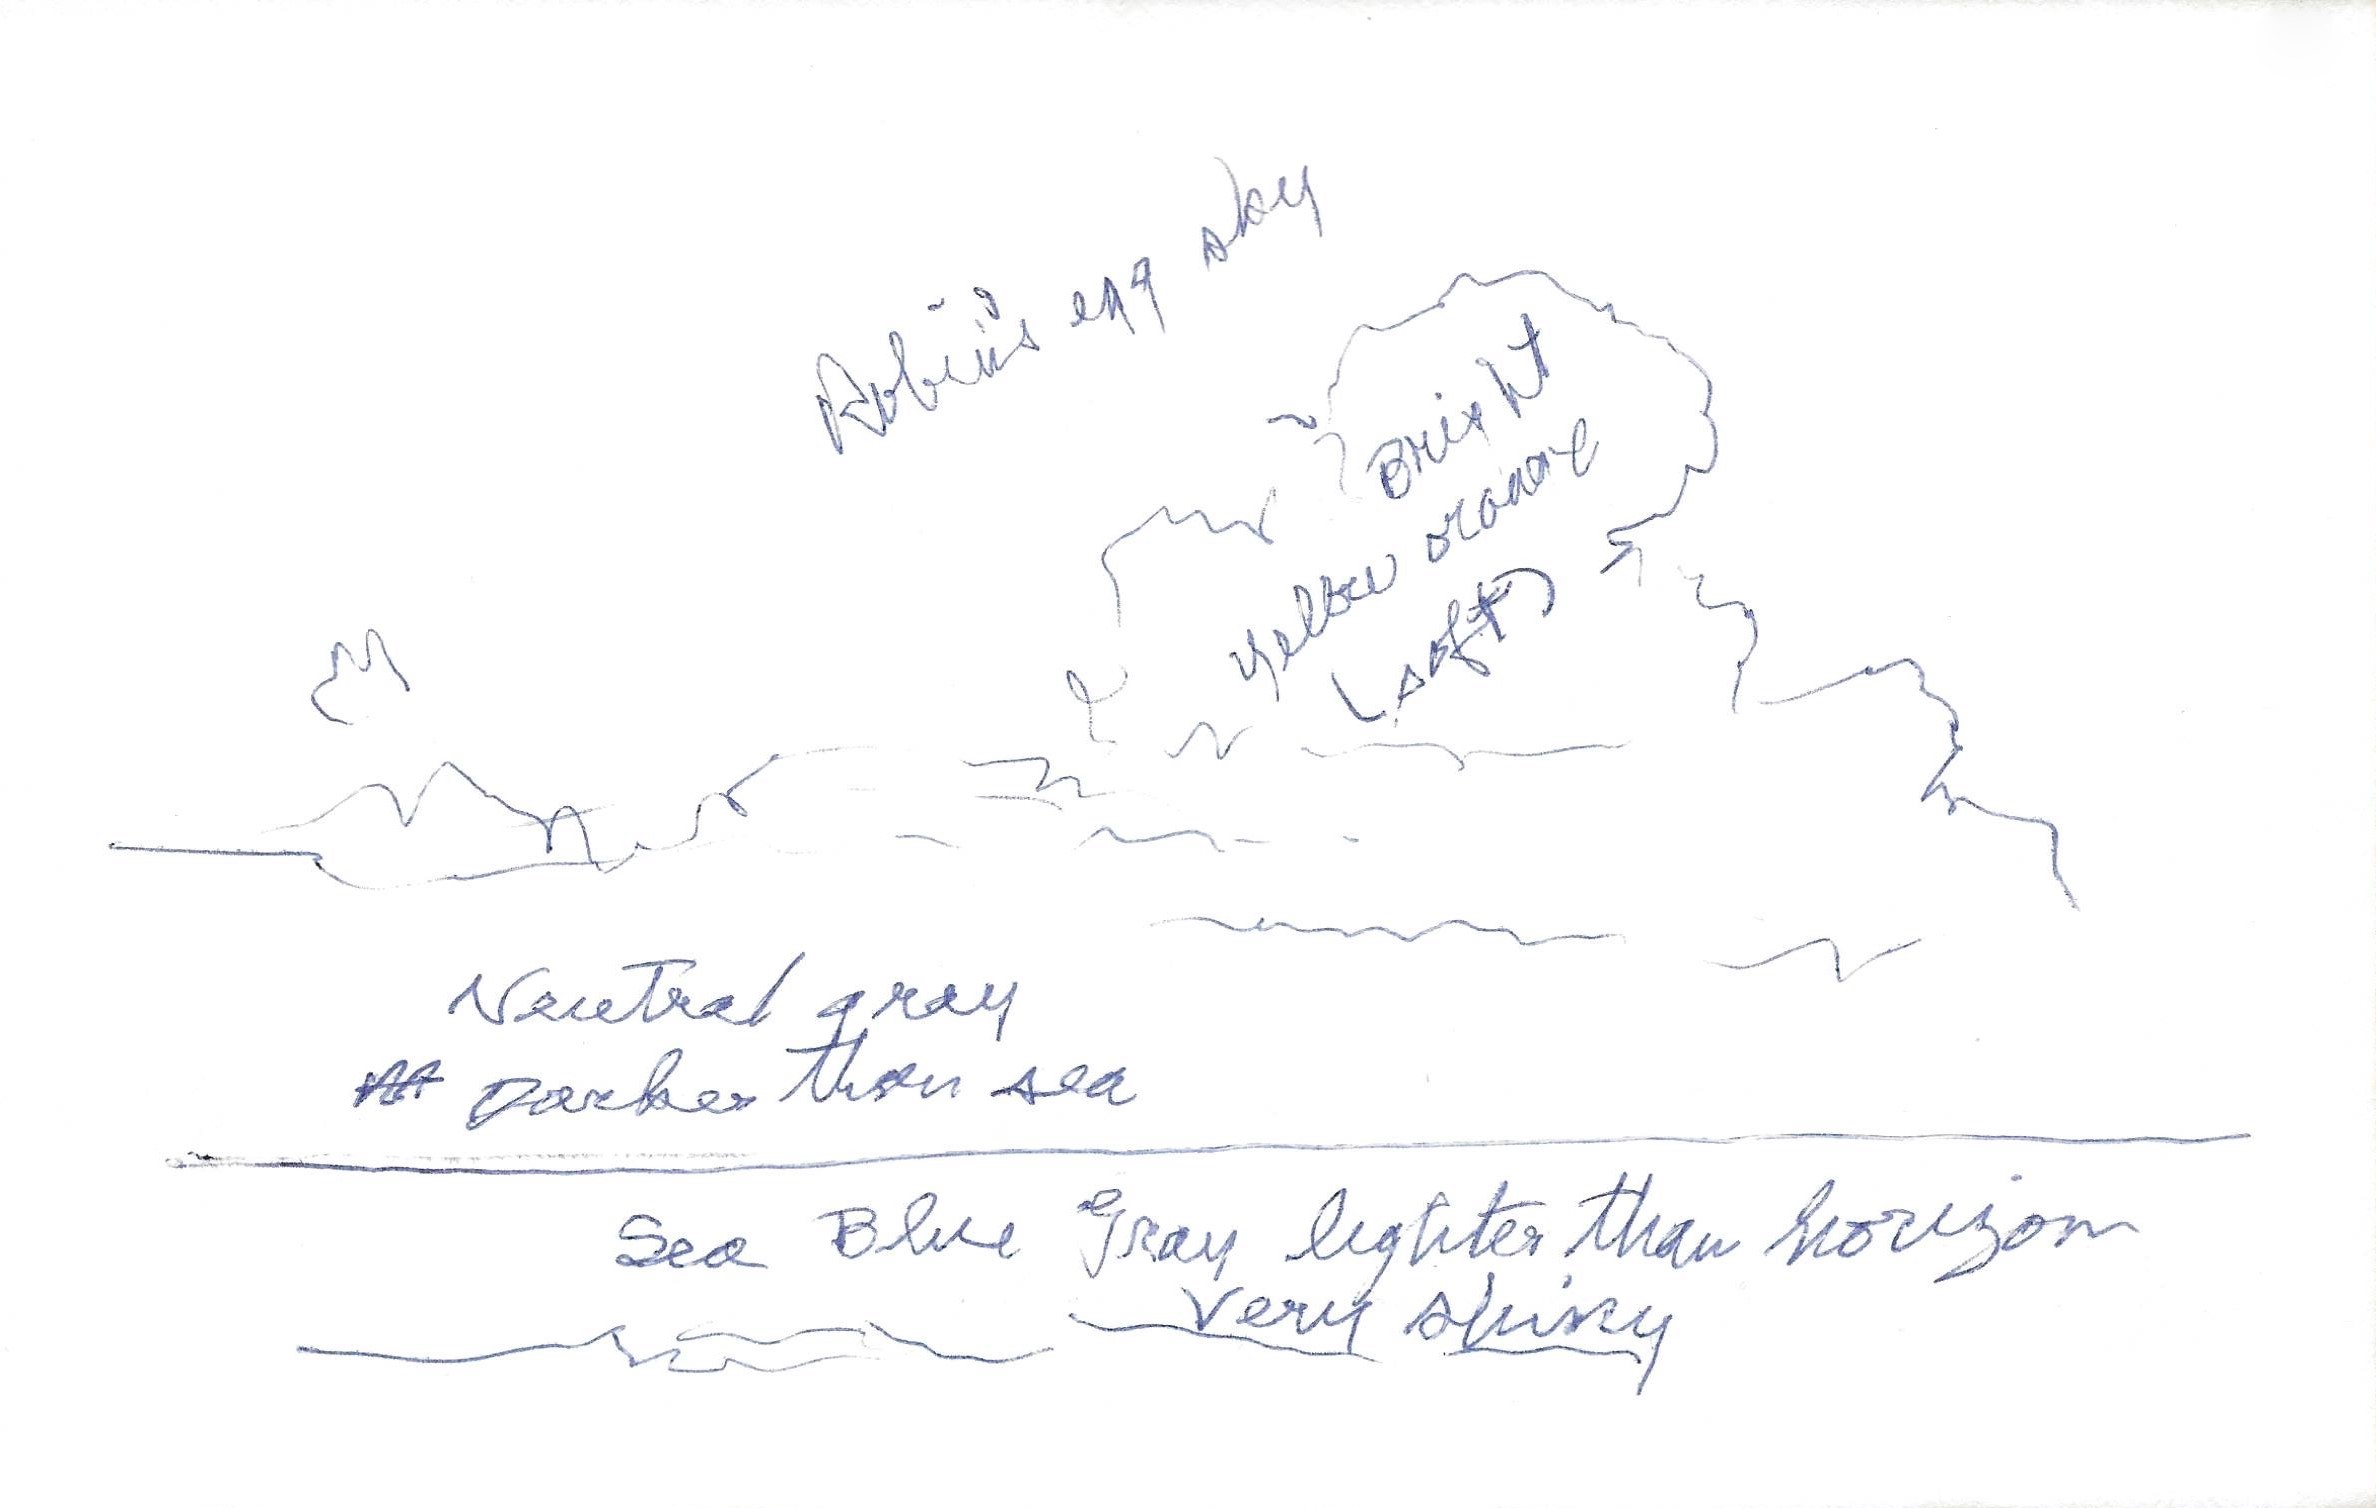 Robin's egg sky
Bright
yellow orange
(soft)
Neutral gray
Darker than sea
Sea Blue Gray lighter than horizon
Very shiny